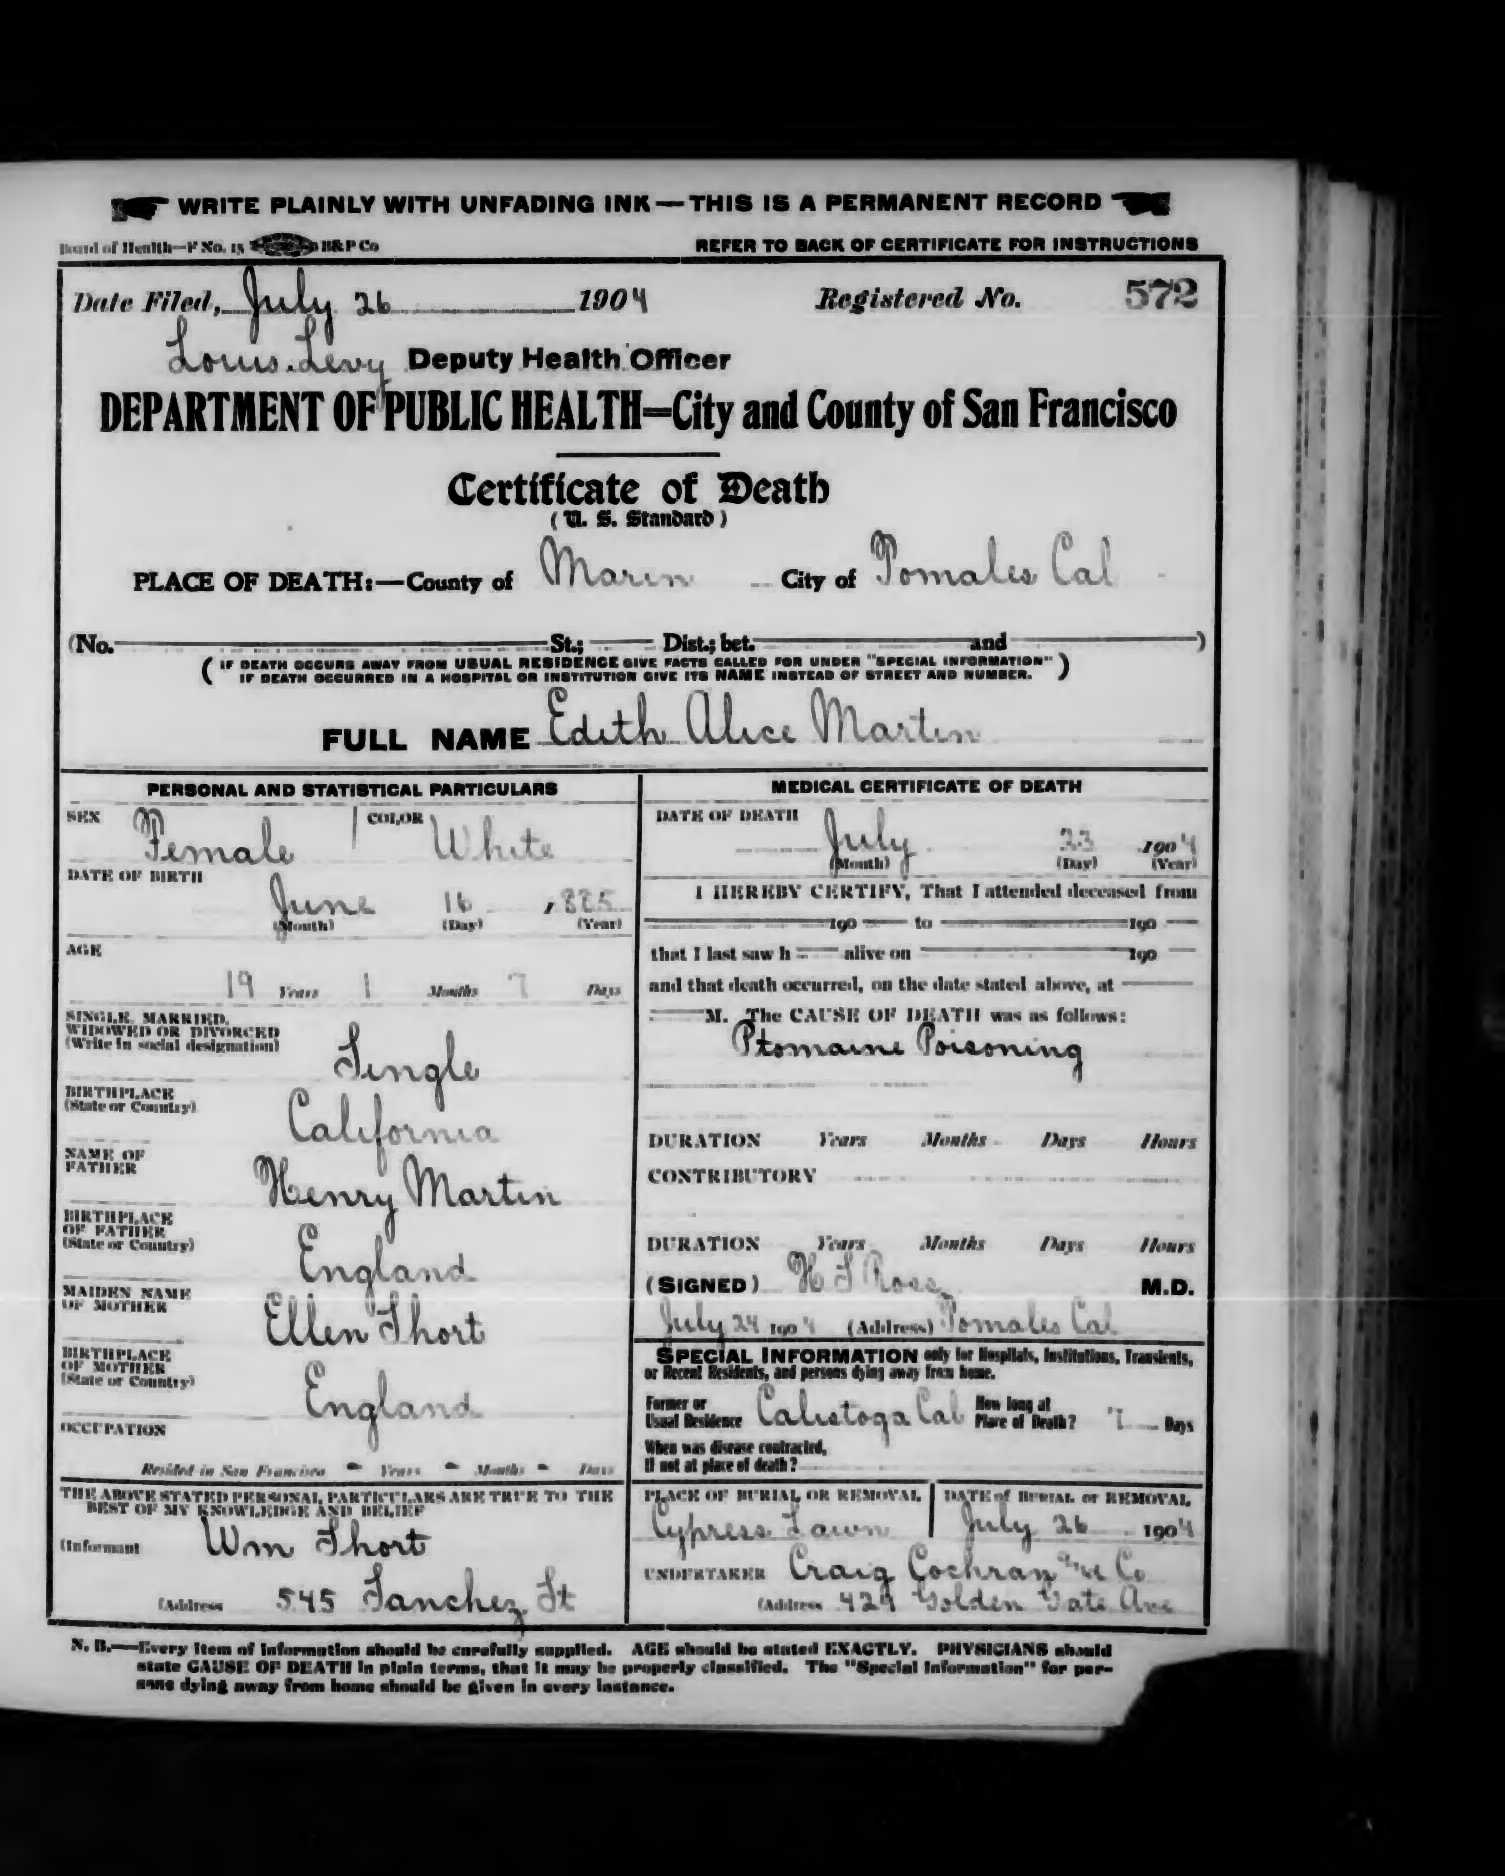 WRITE PLAINLY WITH UNFADING INK—THIS IS A PERMANENT RECORD
Board of Health—F No. 15 B&P Co REFER TO BACK OF CERTIFICATE FOR INSTRUCTIONS
Date Filed, July 26 1904 Registered No. 572
Louis Levy Deputy Health Officer
DEPARTMENT OF PUBLIC HEALTH—City and County of San Francisco
Certificate of Death
(U. S. Standard)
PLACE OF DEATH:—County of Marin City of Tomales Cal
(No. St.; Dist.; bet. and )
(IF DEATH OCCURS AWAY FROM USUAL RESIDENCE GIVE FACTS CALLED FOR UNDER "SPECIAL INFORMATION"
IF DEATH OCCURRED IN A HOSPITAL OR INSTITUTION GIVE ITS NAME INSTEAD OF STREET AND NUMBER.)
FULL NAME Edith Alice Martin
PERSONAL AND STATISTICAL PARTICULARS
SEX Female COLOR White
DATE OF BIRTH
June 16, 1885
(Month) (Day) (Year)
AGE
19 Years 1 Months 7 Days
SINGLE, MARRIED,
WIDOWED OR DIVORCED
(Write in social designation)
Single
BIRTHPLACE
(State or Country)
California
NAME OF
FATHER
Henry Martin
BIRTHPLACE
OF FATHER
(State or Country)
England
MAIDEN NAME
OF MOTHER
Ellen Short
BIRTHPLACE
OF MOTHER
(State or Country)
England
OCCUPATION
Resided in San Francisco - Years - Months - Days
THE ABOVE STATED PERSONAL PARTICULARS ARE TRUE TO THE
BEST OF MY KNOWLEDGE AND BELIEF
(Informant Wm Short
(Address 545 Sanchez St
MEDICAL CERTIFICATE OF DEATH
DATE OF DEATH
July 23 1904
(Month) (Day) (Year)
I HEREBY CERTIFY, That I attended deceased from
190 to 190
that I last saw h alive on 190
and that death occurred, on the date stated above, at
M. The CAUSE OF DEATH was as follows:
Ptomaine Poisoning
DURATION Years Months Days Hours
CONTRIBUTORY
DURATION Years Months Days Hours
(SIGNED) H S Ross M.D.
July 24 1904 (Address) Tomales Cal
SPECIAL INFORMATION only for Hospitals, Institutions, Transients,
or Recent Residents, and persons dying away from home.
Former or
Usual Residence Calistoga Cal How long at
Place of Death? 7 Days
When was disease contracted,
If not at place of death?
PLACE OF BURIAL OR REMOVAL DATE of BURIAL or REMOVAL
Cypress Lawn July 26 1904
UNDERTAKER Craig Cochran and Co
(Address 429 Golden Gate Ave
N. B.—Every item of information should be carefully supplied. AGE should be stated EXACTLY. PHYSICIANS should
state CAUSE OF DEATH in plain terms, that it may be properly classified. The "Special Information" for per-
sons dying away from home should be given in every instance.